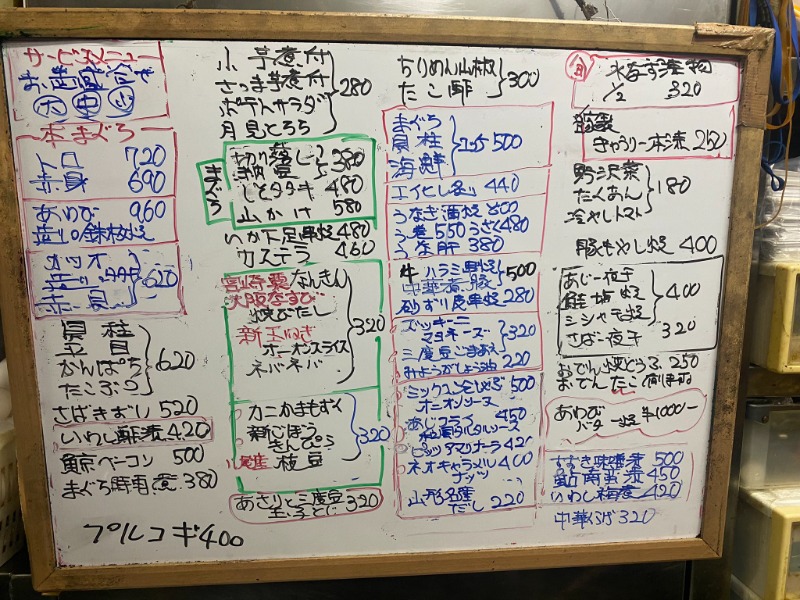 サービスメニュー
お造り盛合せ
大 中 小
本まぐろ
トロ 720
赤身 690
あわび 960
造り or 鉄板焼
カツオ
造り タタキ
赤貝 620
貝柱
平目
かんぱち
たこぶつ 620
さばきずし 520
いわし酢漬 420
鯨ベーコン 500
まぐろ時雨煮 380
プルコギ 400
小芋煮付
さつま芋煮付
ポテトサラダ
月見とろろ 280
まぐろ
切り落し 380
納豆
しそタタキ 480
山かけ 580
いか下足串焼 480
カステラ 460
宮崎栗なんきん
大阪なすび
焼びたし
新玉ねぎ
オニオンスライス
ネバネバ 320
カニかまもずく
新ごぼう
きんぴら
枝豆 320
あさりと三度豆
玉子とじ 320
ちりめん山椒
たこ酢 300
まぐろ
貝柱
海鮮 ユッケ 500
エイヒレ炙り 440
うなぎ蒲焼 800
う巻 550 うざく 480
うなぎ肝 380
牛ハラミ串焼
中華煮豚 500
砂ずり 皮串焼 280
ズッキーニ
マヨネーズ
三度豆ごまあえ 320
みょうがしょう油 220
ミックス天ぷら 500
オニオンソース
あじフライ 450
和風タルタルソース
ピッツァマリナーラ 420
ネオキャラメル 400
ナッツ
山形名産
だし 220
水なす漬物
1/2 320
自家製
きゅうり一本漬 250
野沢菜
たくあん
冷やしトマト 180
豚もやし焼 400
あじ一夜干
鮭塩焼
シシャモ焼 400
さば一夜干 320
おでん焼どうふ 250
おでんたこ
あわび
バター焼 ¥1000-
すずき味噌漬 500
鮎南蛮漬 450
いわし梅煮 420
中華くらげ 320